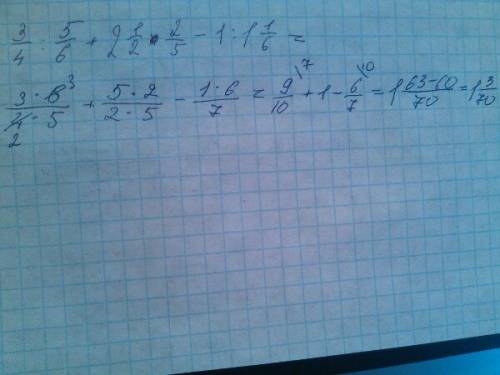 3/4 : 5/6 + 2 1/2 · 2/5 − 1 : 1 1/6 =
3·6³/4₂·5 + 5·2/2·5 − 1·6/7 = 9/10 \7 + 1 − 6/7 \10 = 1 63−60/70 = 1 3/70